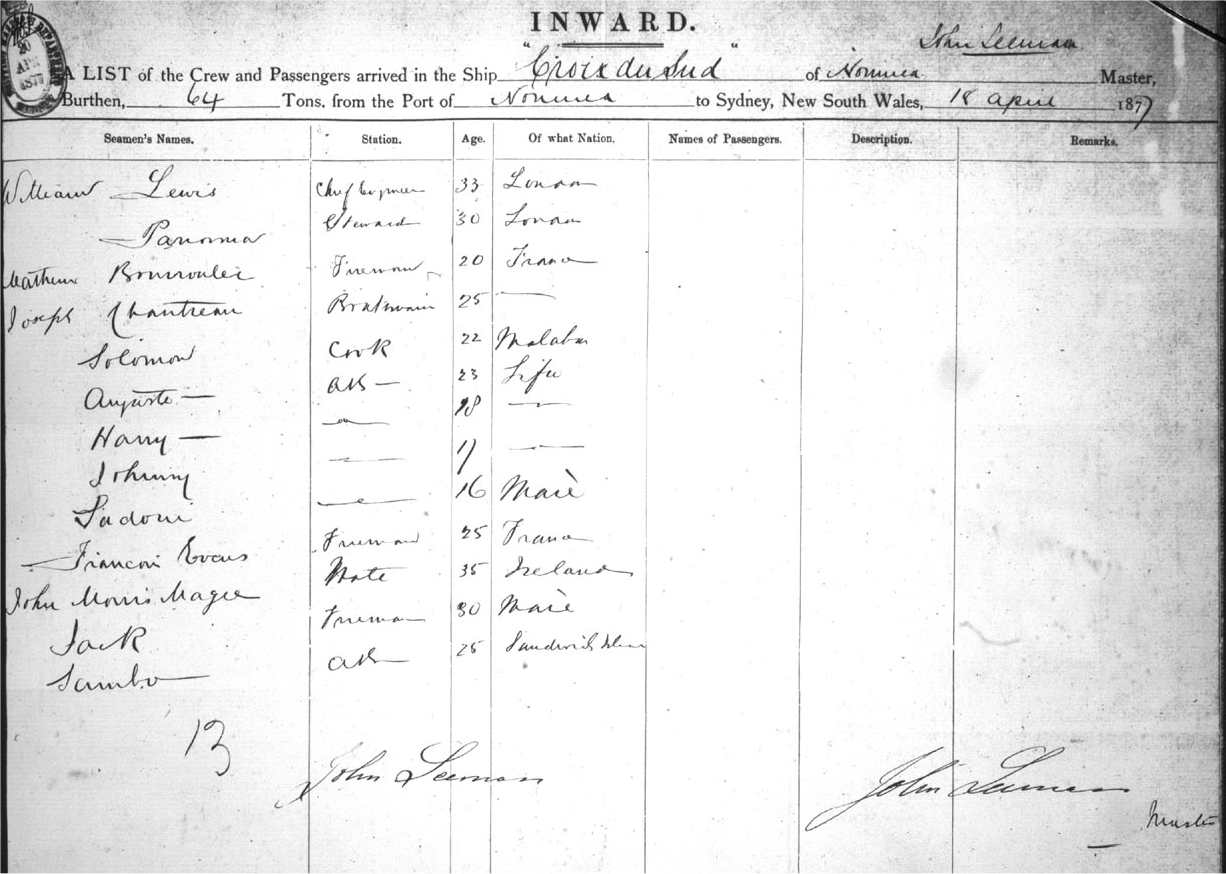 INWARD.
John Leeman
A LIST of the Crew and Passengers arrived in the Ship "Croix du Sud" of Noumea Master,
Burthen, 64 Tons, from the Port of Noumea to Sydney, New South Wales, 18 April 1877
20
APR
1877
Seamen's Names. Station. Age. Of what Nation. Names of Passengers. Description. Remarks.
William Lewis Chief Engineer 33 London
Steward 30 London
Mathieu Fireman 20 France
Joseph Chantreau 25 —
Solomon Cook 22 Malabar
Auguste — AB — 23 Lifu
Harry — — 18 —
Johnny — 17 —
— 16 Maré
Francois Fireman 25 France
John Morris Magee Mate 35 Ireland
Jack Fireman 30 Maré
Sambo AB 25 Sandwich
13
John Leeman John Leeman
Master